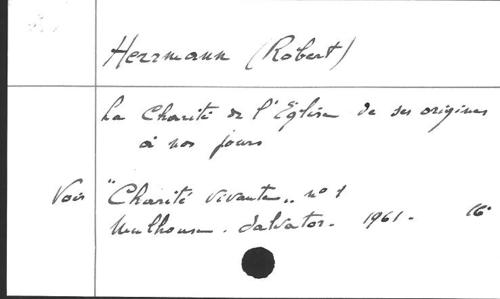 Herrmann (Robert)
La Charité de l'Eglise de ses origines
à nos jours
Voir "Charité vivante" n° 1
Mulhouse. Salvator. 1961. 16°